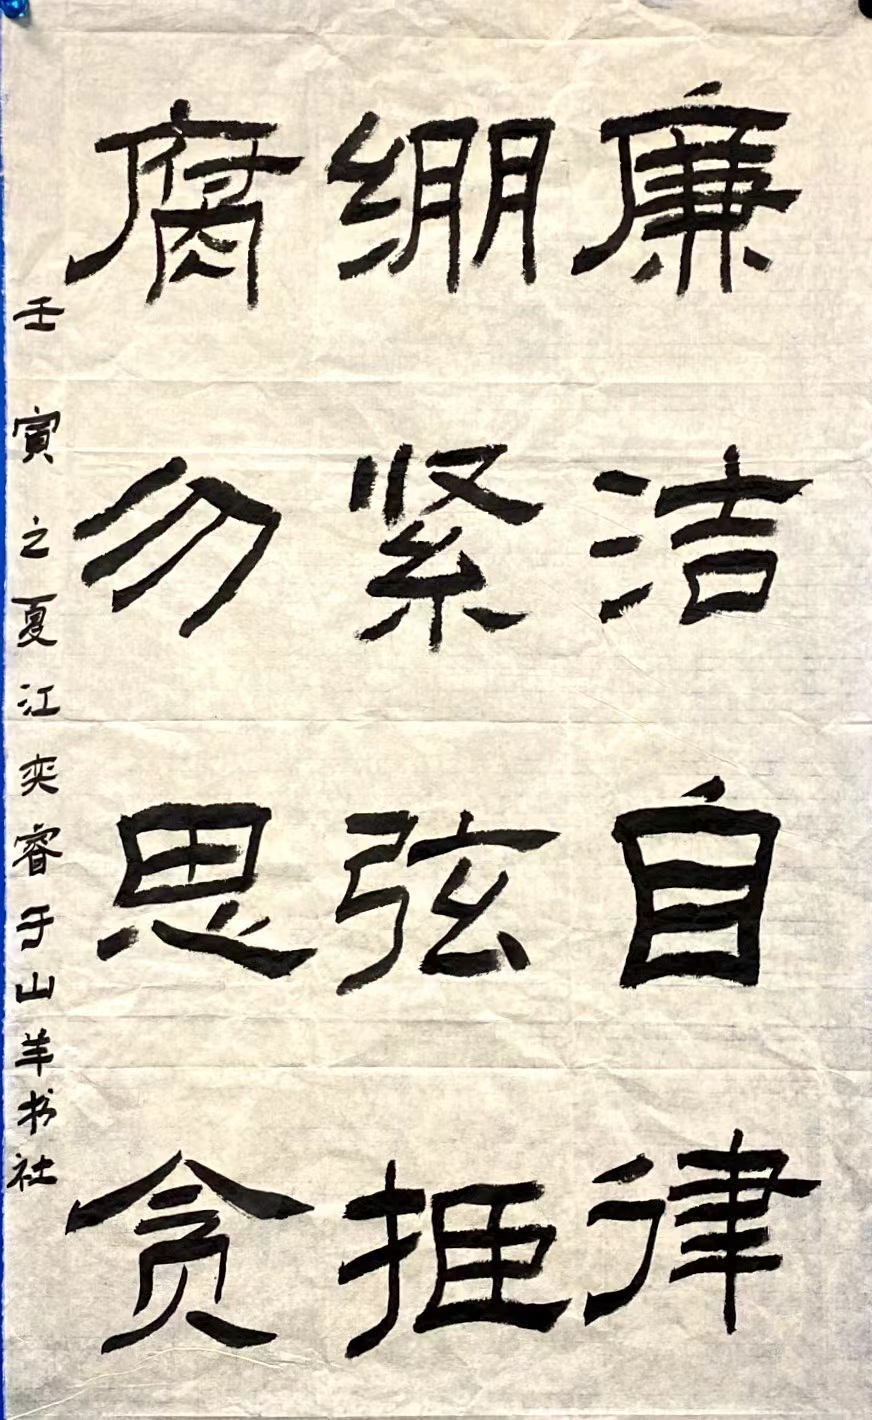 廉洁自律
绷紧弦拒
腐勿思贪
壬寅之夏江奕睿于山羊书社